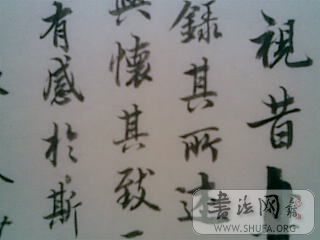 視昔
録其所述
興懷其致一
有感於斯
书法网
WWW.SHUFA.ORG